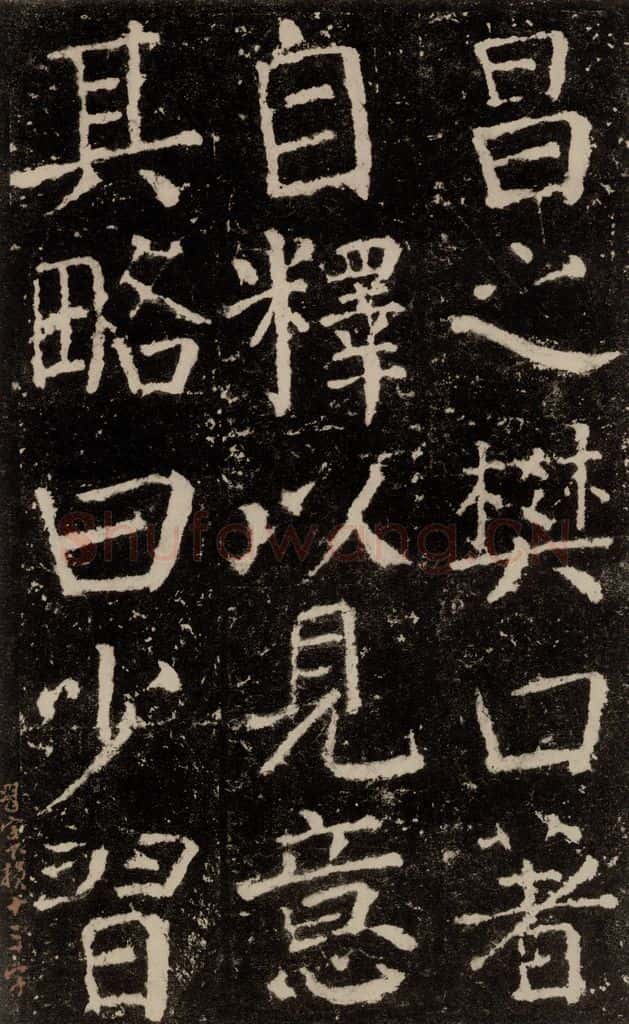 昌之樊口著
自釋以見意
其略曰少習
Shufawang.CN